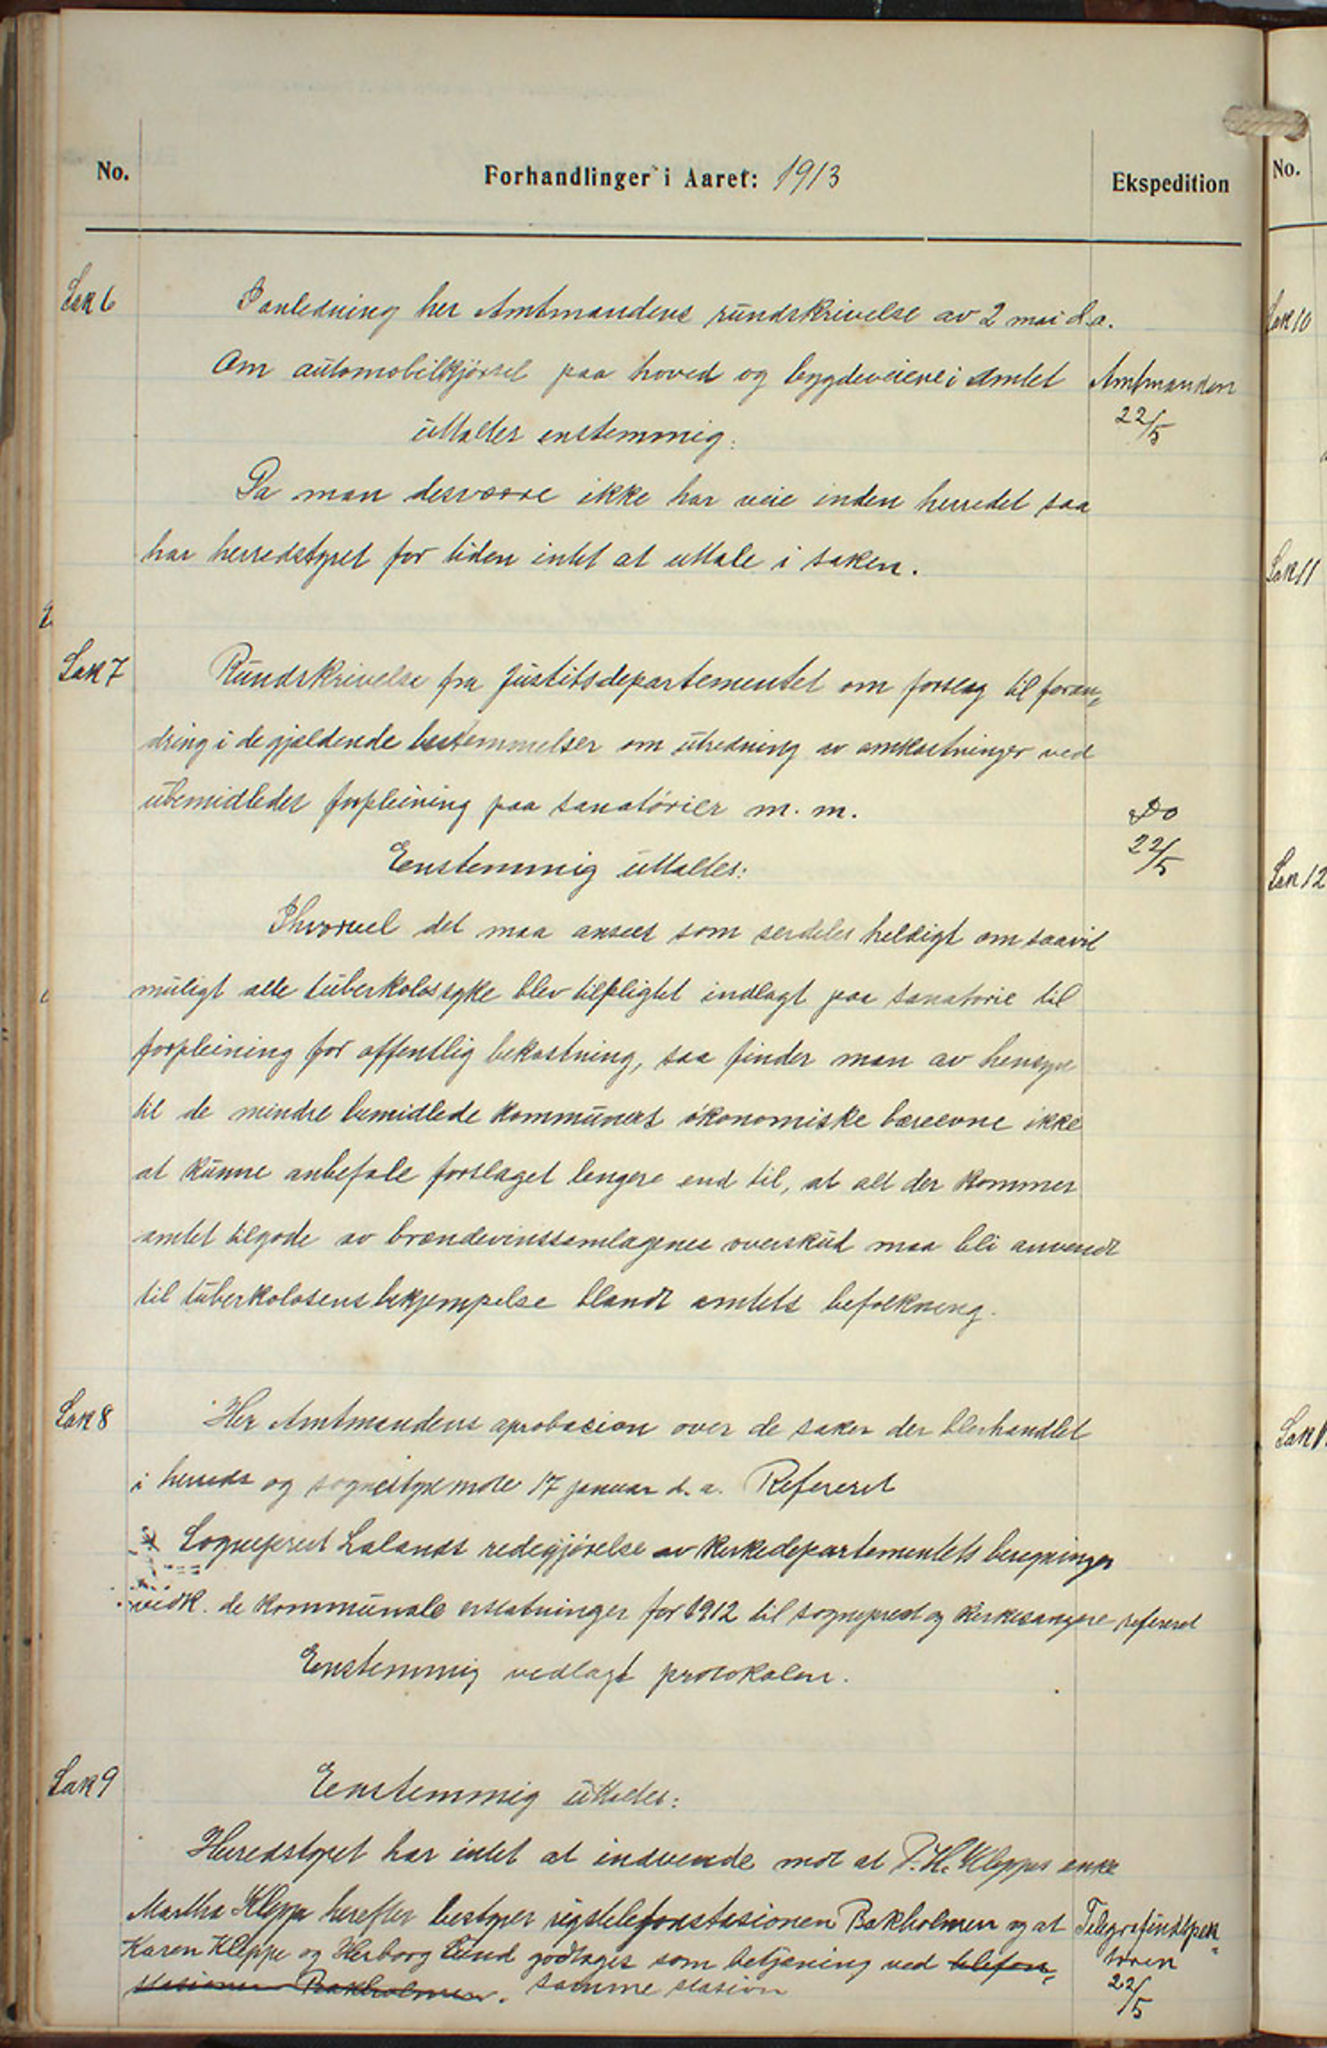 No. Forhandlinger i Aaret: 1913 Ekspedition No.
Sak 6 I anledning her Amtmandens rundskrivelse av 2 mai d.a.
Om automobilkjørsel paa hoved og bygdeveiene i Amtet Amtmanden
22/5
uttaltes enstemmig:
Da man desværre ikke har veie inden herredet saa
har herredstyret for tiden intet at uttale i saken.
Sak 7 Rundskrivelse fra Justitsdepartementet om forslag til foran„
dring i de gjældende bestemmelser om utredning av omkostninger ved
ubemidledes forpleining paa sanatórier m. m. Do
22/5
Eenstemmig uttaltes:
Ihvorvel det maa ansees som serdeles heldigt om saavit
muligt alle tuberkolossyke blev tilpligtet indlagt paa sanatorie til
forpleining for offentlig bekostning, saa finder man av hensyn
til de mindre bemidlede kommuners økonomiske bæreevne ikke
at kunne anbefale forslaget lengere end til, at alt der kommer
amtet tilgode av brændevinssamlagenes overskud maa bli anvendt
til tuberkolosens bekjempelse blandt amtets befolkning.
Sak 8 Her Amtmandens aprobasion over de saker der blev handlet
i herreds og sognestyremøte 17 januar d. a. Refereret
Sogneprest Lalands redegjørelse av kirkedepartementets beregninger
vedk. de kommunale erstatninger for 1912 til sogneprest og kirkesangere refereret
Enstemmig vedlagt protokolen.
Sak 9 Eenstemmig uttaltes:
Herredstyret har intet at indvende mot at P. H. Kleppes enke
Martha Kleppe herefter bestyrer rigstelefonstasionen Bakholmen og at Telegrafinspek„
Karen Kleppe og Herborg Lund godtages som betjæning ved telefon„ tøren
stasionen Bakholmen. samme stasion 22/5
Sak 10
Sak 11
Sak 12